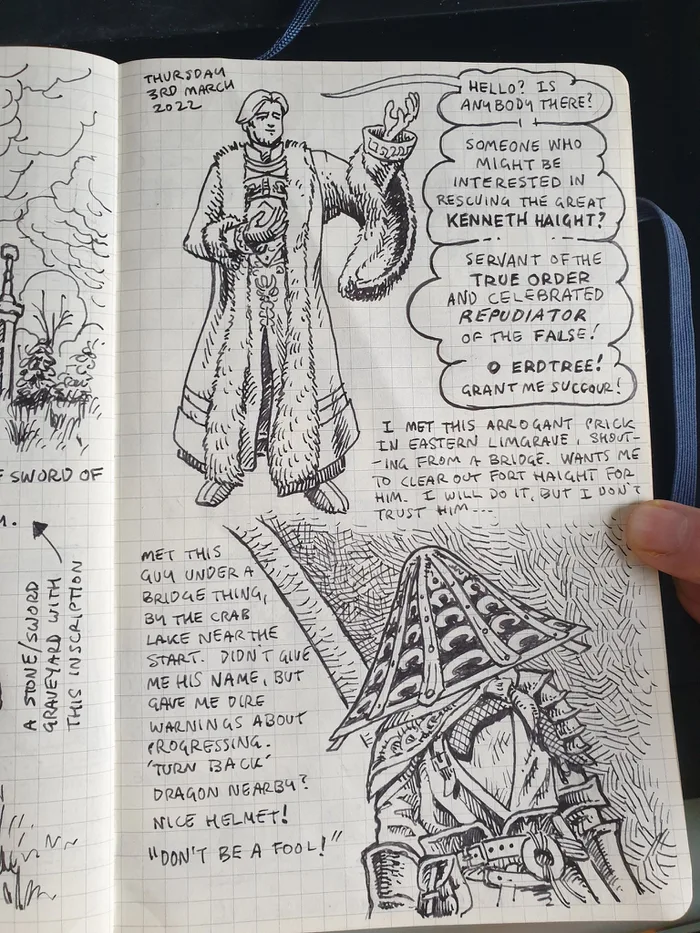 THURSDAY
3RD MARCH
2022
HELLO? IS
ANYBODY THERE?
SOMEONE WHO
MIGHT BE
INTERESTED IN
RESCUING THE GREAT
KENNETH HAIGHT?
SERVANT OF THE
TRUE ORDER
AND CELEBRATED
REPUDIATOR
OF THE FALSE!
O ERDTREE!
GRANT ME SUCCOUR!
I MET THIS ARROGANT PRICK
IN EASTERN LIMGRAVE, SHOUT-
-ING FROM A BRIDGE. WANTS ME
TO CLEAR OUT FORT HAIGHT FOR
HIM. I WILL DO IT, BUT I DON'T
TRUST HIM---
MET THIS
GUY UNDER A
BRIDGE THING,
BY THE CRAB
LAKE NEAR THE
START. DIDN'T GIVE
ME HIS NAME, BUT
GAVE ME DIRE
WARNINGS ABOUT
PROGRESSING.
'TURN BACK'
DRAGON NEARBY?
NICE HELMET!
"DON'T BE A FOOL!"
SWORD OF
A STONE/SWORD
GRAVEYARD WITH
THIS INSCRIPTION